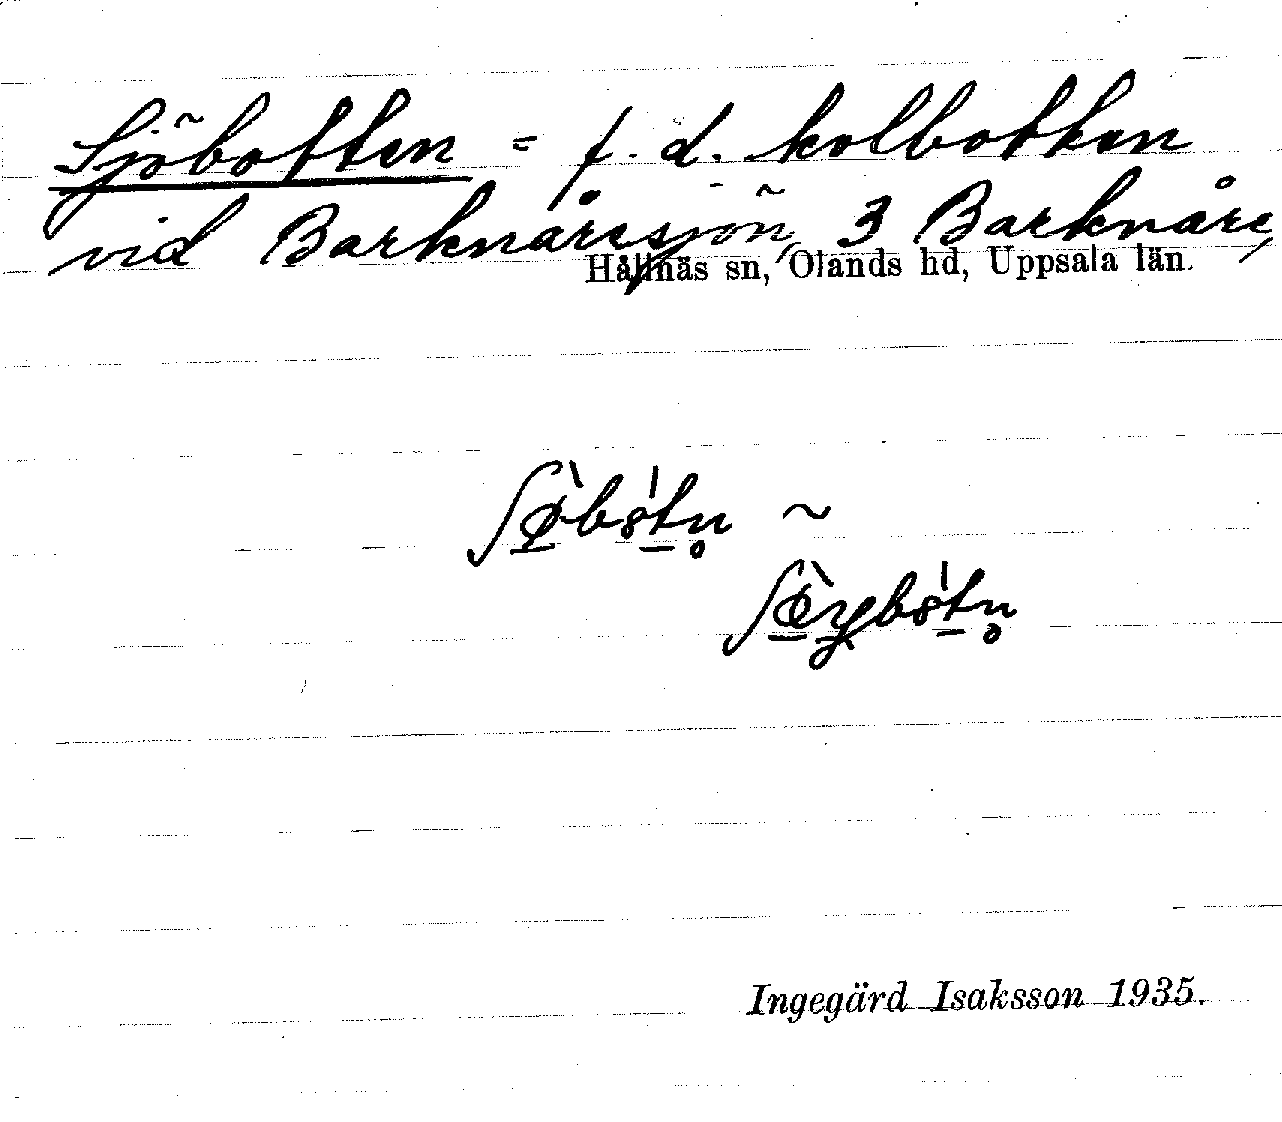 Sjöbotten = f. d. kolbotten
vid Barknåresjön, 3 Barknåre,
Hållnäs sn, Olands hd, Uppsala län.
Ingegärd Isaksson 1935.